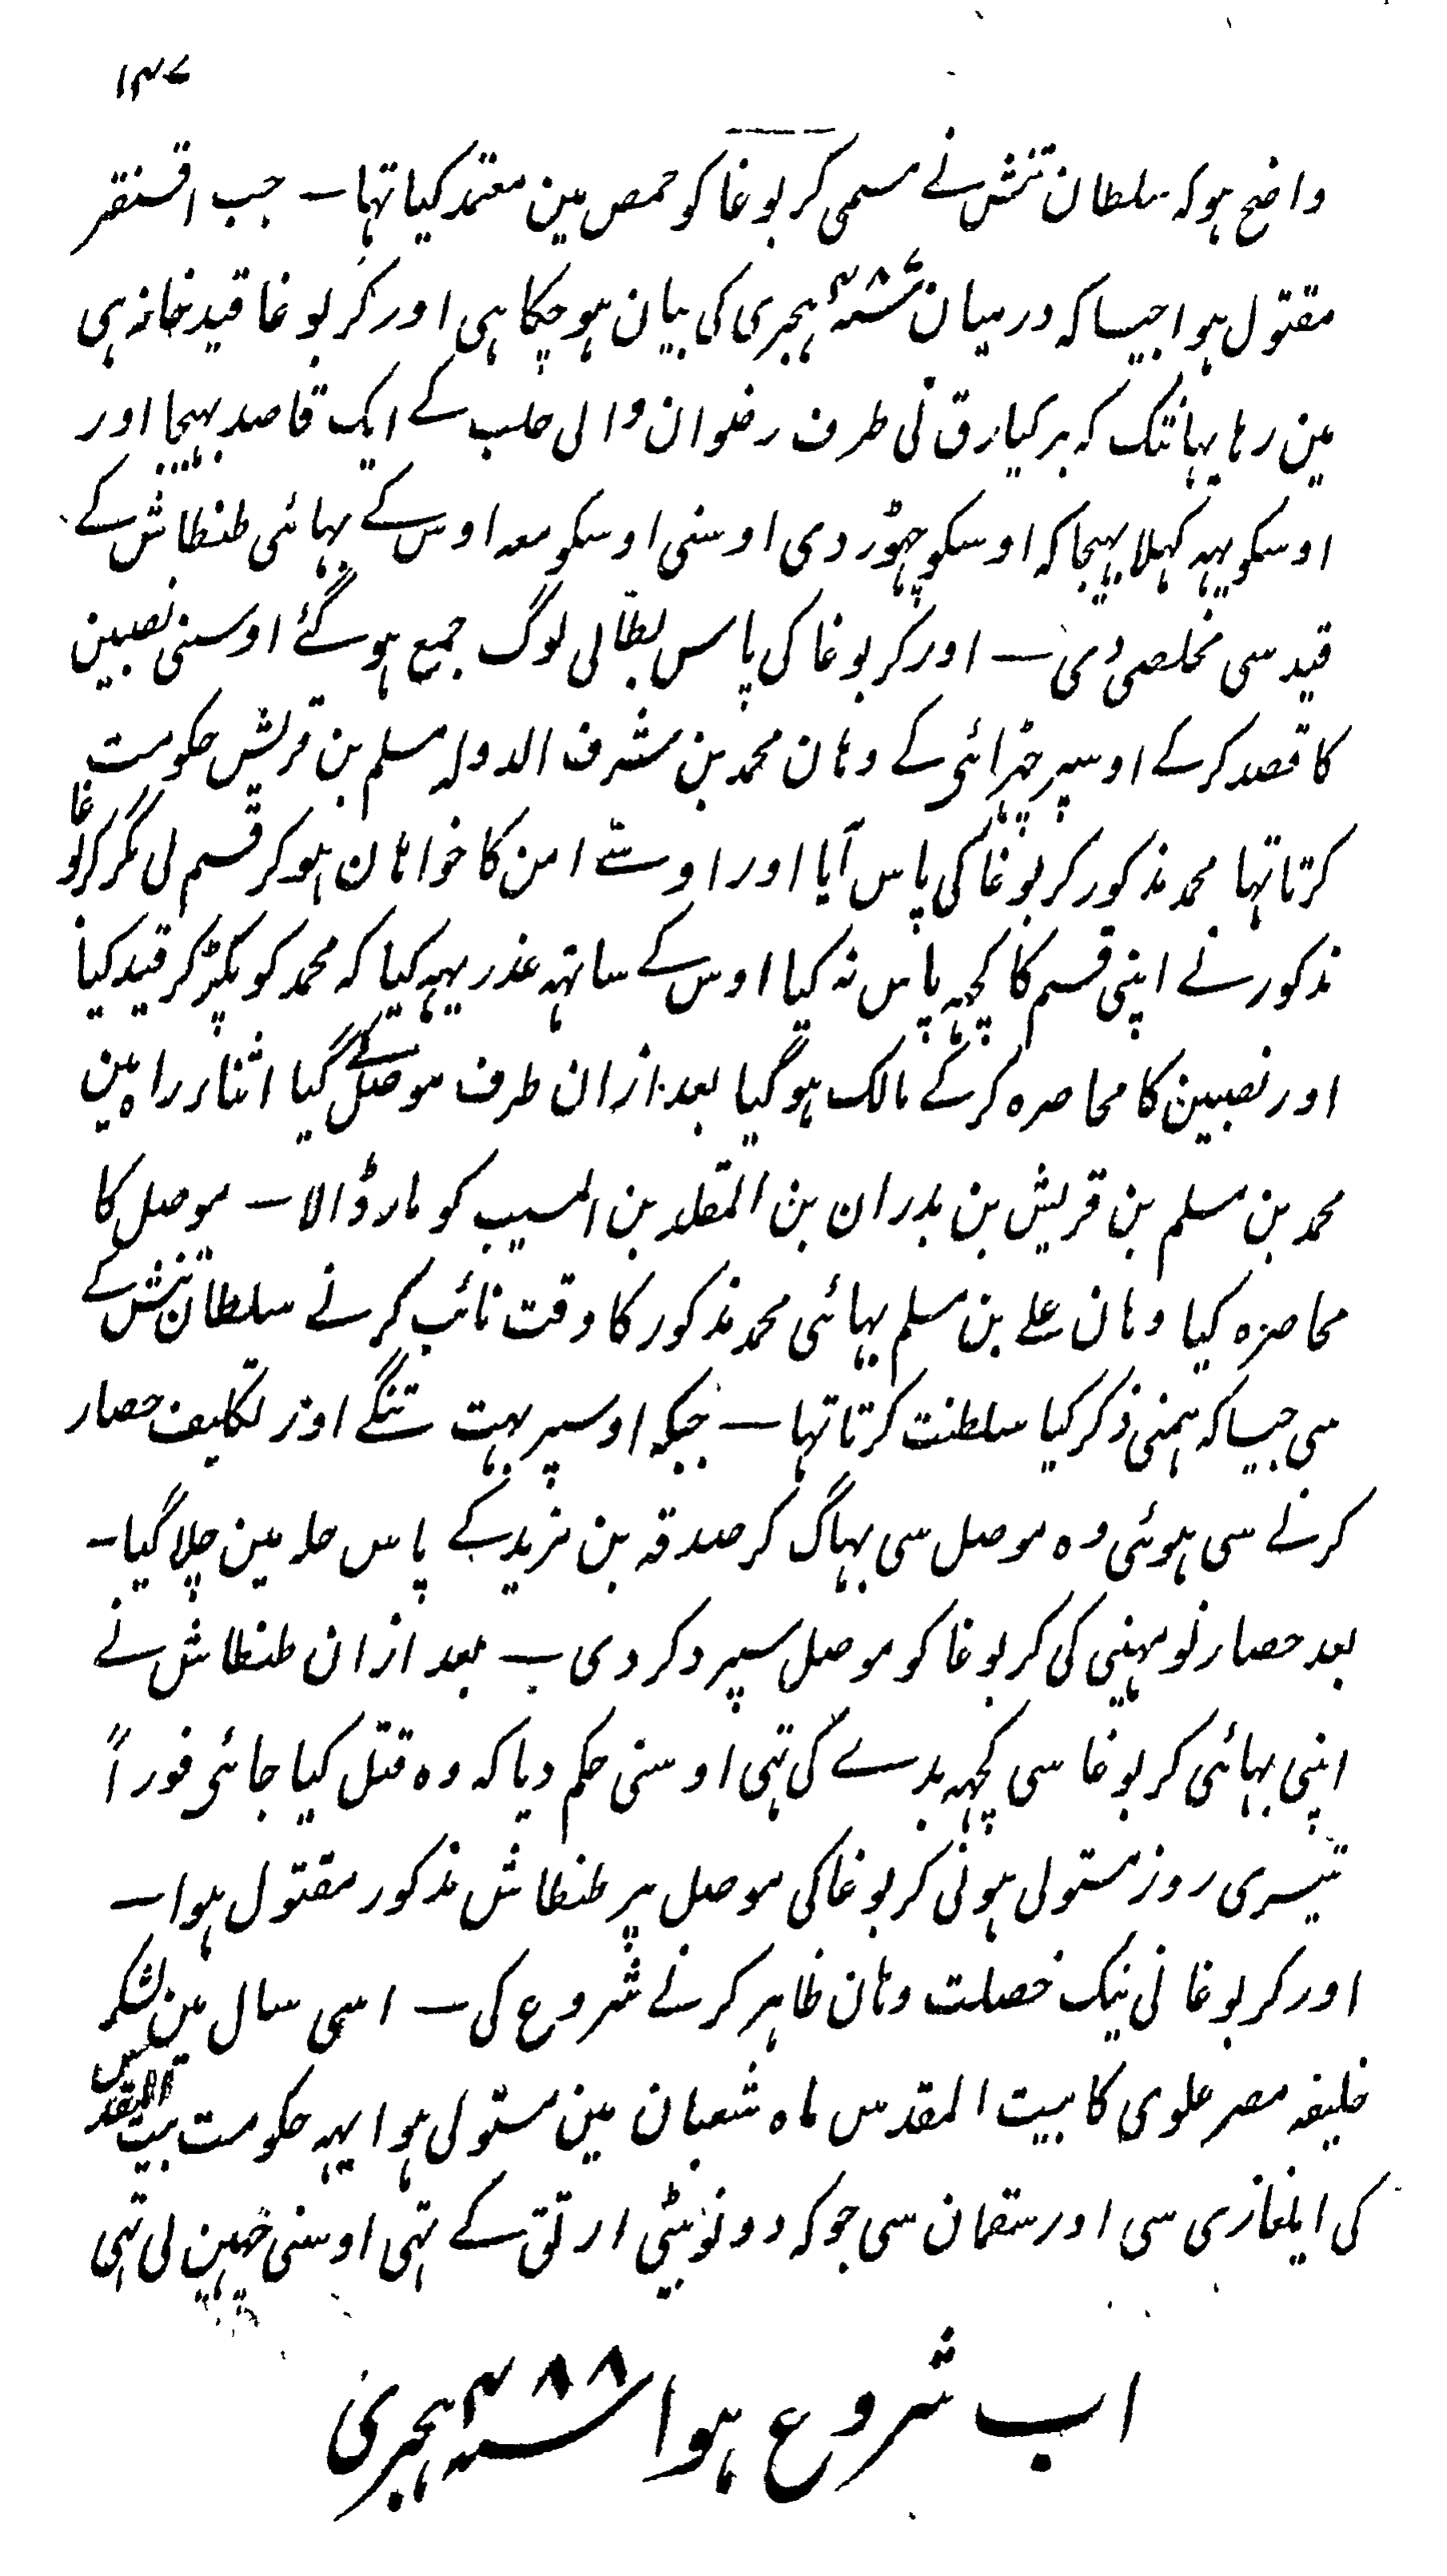 ۱۴۷
واضح ہو کہ سلطان تتش نے مسمی کربوغا کو حمص مین معتمد کیا تہا — جب اقسنقر
مقتول ہوا جیسا کہ درمیان سنہ ۴۸۷ ہجری کی بیان ہو چکا ہی اور کربوغا قید خانہ ہی
مین رہا یہانتک کہ برکیارق نی طرف رضوان والی حلب کے ایک قاصد بہیجا اور
اوسکو یہہ کہلا بہیجا کہ اوسکو چہوڑ دی اوسنی اوسکو معہ اوس کے بہائی طنطاش کے
قید سی مخلصی دی — اور کربوغا کی پاس بطالی لوگ جمع ہو گئے اوسنی نصیبین
کا قصد کر کے اوسپر چڑائی کے وہان محمد بن مشرف الدولہ مسلم بن قریش حکومت
کرتا تہا محمد مذکور کربوغا کی پاس آیا اور اوسے امن کا خواہان ہو کر قسم لی مگر کربوغا
مذکور نے اپنی قسم کا کچہہ پاس نہ کیا اوس کے ساتہہ عذر یہہ کیا کہ محمد کو پکڑ کر قید کیا
اور نصیبین کا محاصرہ کر کے مالک ہو گیا بعد ازان طرف موصل کے گیا اثناء راہ مین
محمد بن مسلم بن قریش بن بدران بن المقلد بن المسیب کو مار ڈالا — موصل کا
محاصرہ کیا وہان علے بن مسلم بہائی محمد مذکور کا وقت نائب کرنے سلطان تتش کے
سی جیسا کہ ہمنی ذکر کیا سلطنت کرتا تہا — جبکہ اوسپر بہت تنگے اور تکلیف حصار
کرنے سی ہوئی وہ موصل سی بہاگ کر صدقہ بن مزید کے پاس حلہ مین چلا گیا —
بعد حصار نو مہینی کی کربوغا کو موصل سپرد کر دی — بعد ازان طنطاش نے
اپنی بہائی کربوغا سی کچہہ بدے کی تہی اوسنی حکم دیا کہ وہ قتل کیا جائی فوراً
تیسری روز مستولی ہونی کربوغا کی موصل پر طنطاش مذکور مقتول ہوا —
اور کربوغا نی نیک خصلت وہان ظاہر کرنے شروع کی — اسی سال مین لشکر
خلیفہ مصر علوی کا بیت المقدس ماہ شعبان مین مستولی ہوا یہہ حکومت بیت المقدس
کی ایلغازی سی اور سقمان سی جو کہ دونو بیٹی ارتق کے تہی اوسنی چہین لی تہی
اب شروع ہوا سنہ ۴۸۸ ہجری